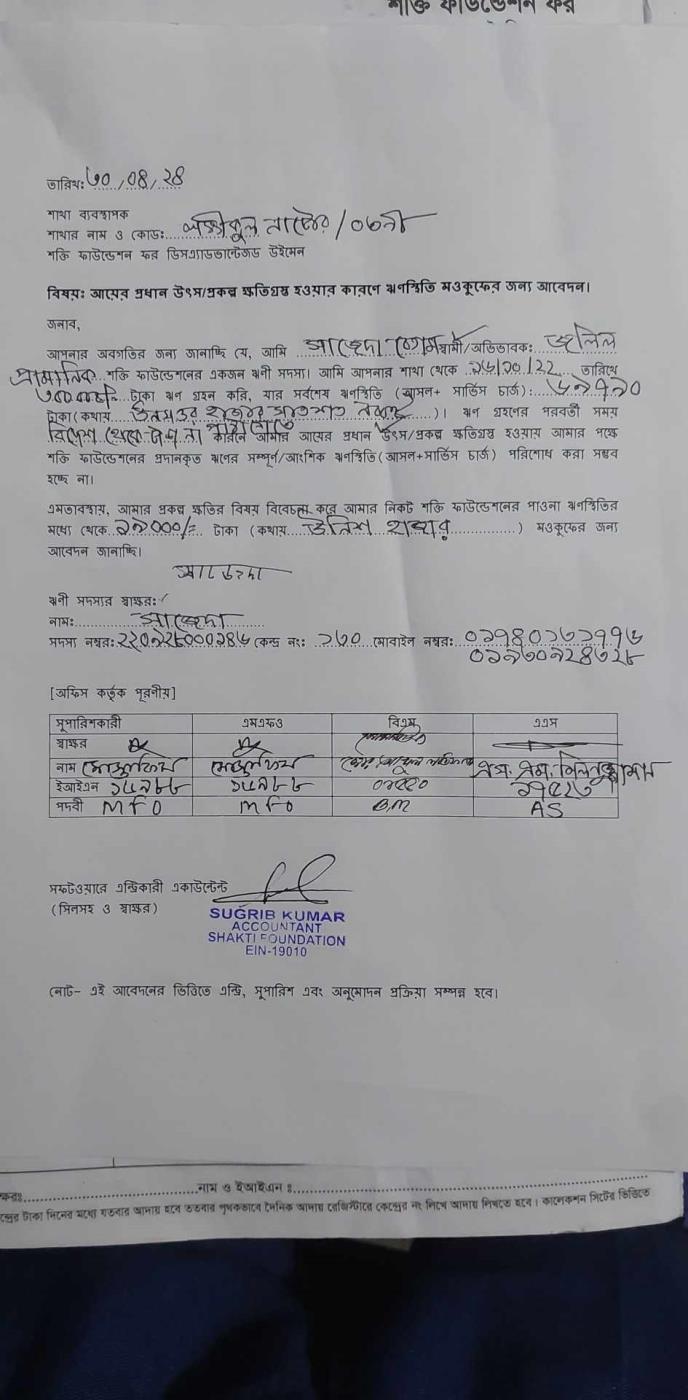 শক্তি ফাউন্ডেশন ফর
তারিখ: ৩০/০৪/২৪
শাখা ব্যবস্থাপক
শাখার নাম ও কোড: নাটোর/
শক্তি ফাউন্ডেশন ফর ডিসএ্যাডভান্টেজড উইমেন
বিষয়: আয়ের প্রধান উৎস/প্রকল্প ক্ষতিগ্রস্থ হওয়ার কারণে ঋণস্থিতি মওকুফের জন্য আবেদন।
জনাব,
আপনার অবগতির জন্য জানাচ্ছি যে, আমি সাহেদা বেগম স্বামী/অভিভাবক: জলিল
প্রামানিক শক্তি ফাউন্ডেশনের একজন ঋণী সদস্য। আমি আপনার শাখা থেকে ২৬/১০/২২ তারিখে
টাকা ঋণ গ্রহন করি, যার সর্বশেষ ঋণস্থিতি (আসল+ সার্ভিস চার্জ):
টাকা(কথায় হাজার সাতশত )। ঋণ গ্রহণের পরবর্তী সময়
বিদেশ থেকে টাকা না কারনে আমার আয়ের প্রধান উৎস/প্রকল্প ক্ষতিগ্রস্থ হওয়ায় আমার পক্ষে
শক্তি ফাউন্ডেশনের প্রদানকৃত ঋণের সম্পূর্ণ/আংশিক ঋণস্থিতি(আসল+সার্ভিস চার্জ) পরিশোধ করা সম্ভব
হচ্ছে না।
এমতাবস্থায়, আমার প্রকল্প ক্ষতির বিষয় বিবেচনা করে আমার নিকট শক্তি ফাউন্ডেশনের পাওনা ঋণস্থিতির
মধ্যে থেকে ১৯০০০/= টাকা (কথায় উনিশ হাজার) মওকুফের জন্য
আবেদন জানাচ্ছি।
সাহেদা
ঋণী সদস্যর স্বাক্ষর:
নাম: সাহেদা
সদস্য নম্বর: কেন্দ্র নং: ১৭০ মোবাইল নম্বর:
[অফিস কর্তৃক পূরণীয়]
সুপারিশকারী এমএফও বিএম এএস
স্বাক্ষর
নাম
ইআইএন ১৬৯৮৮ ১৬৯৮৮
পদবী MFO MFO B.M AS
সফটওয়্যারে এন্ট্রিকারী একাউন্টেন্ট
(সিলসহ ও স্বাক্ষর)
SUGRIB KUMAR
ACCOUNTANT
SHAKTI FOUNDATION
EIN-19010
নোট- এই আবেদনের ভিত্তিতে এন্ট্রি, সুপারিশ এবং অনুমোদন প্রক্রিয়া সম্পন্ন হবে।
নাম ও ইআইএন ঃ
টাকা দিনের মধ্যে যতবার আদায় হবে ততবার পৃথকভাবে দৈনিক আদায় রেজিস্টারে কেন্দ্রের নং লিখে আদায় লিখতে হবে। কালেকশন সিটের ভিত্তিতে